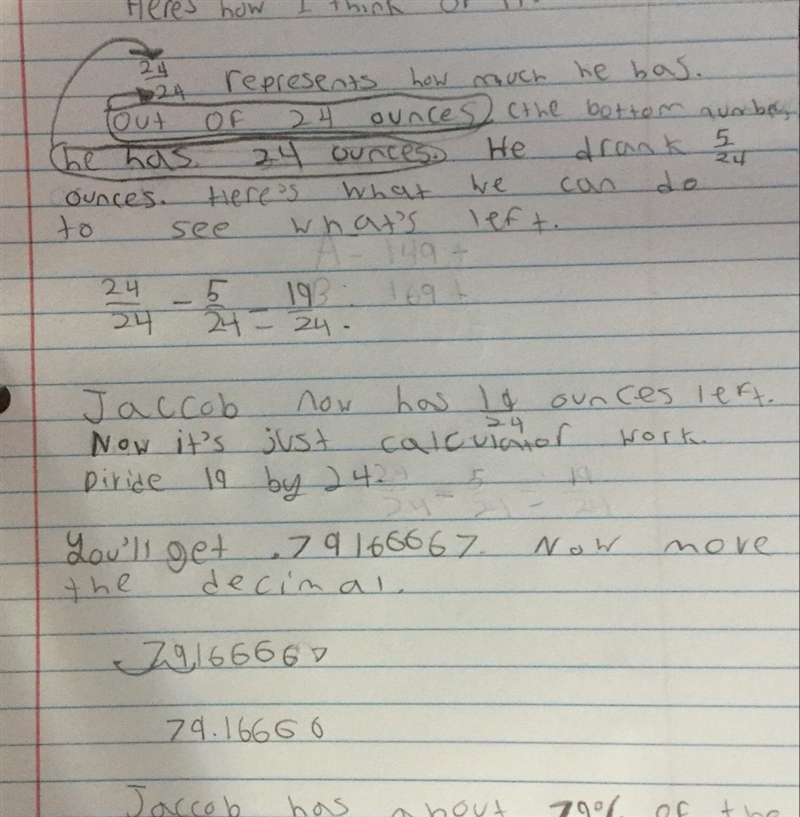 Here's how I think of
24
24 represents how much he has.
Out of 24 ounces (the bottom number)
he has 24 ounces. He drank 5/24
ounces. Here's what we can do
to see what's left.
24/24 - 5/24 = 19/24.
Jaccob now has 19/24 ounces left.
Now it's just calculator work.
Divide 19 by 24.
You'll get .79166667. Now move
the decimal.
.79166667
79.16666
Jaccob has about 79% of the